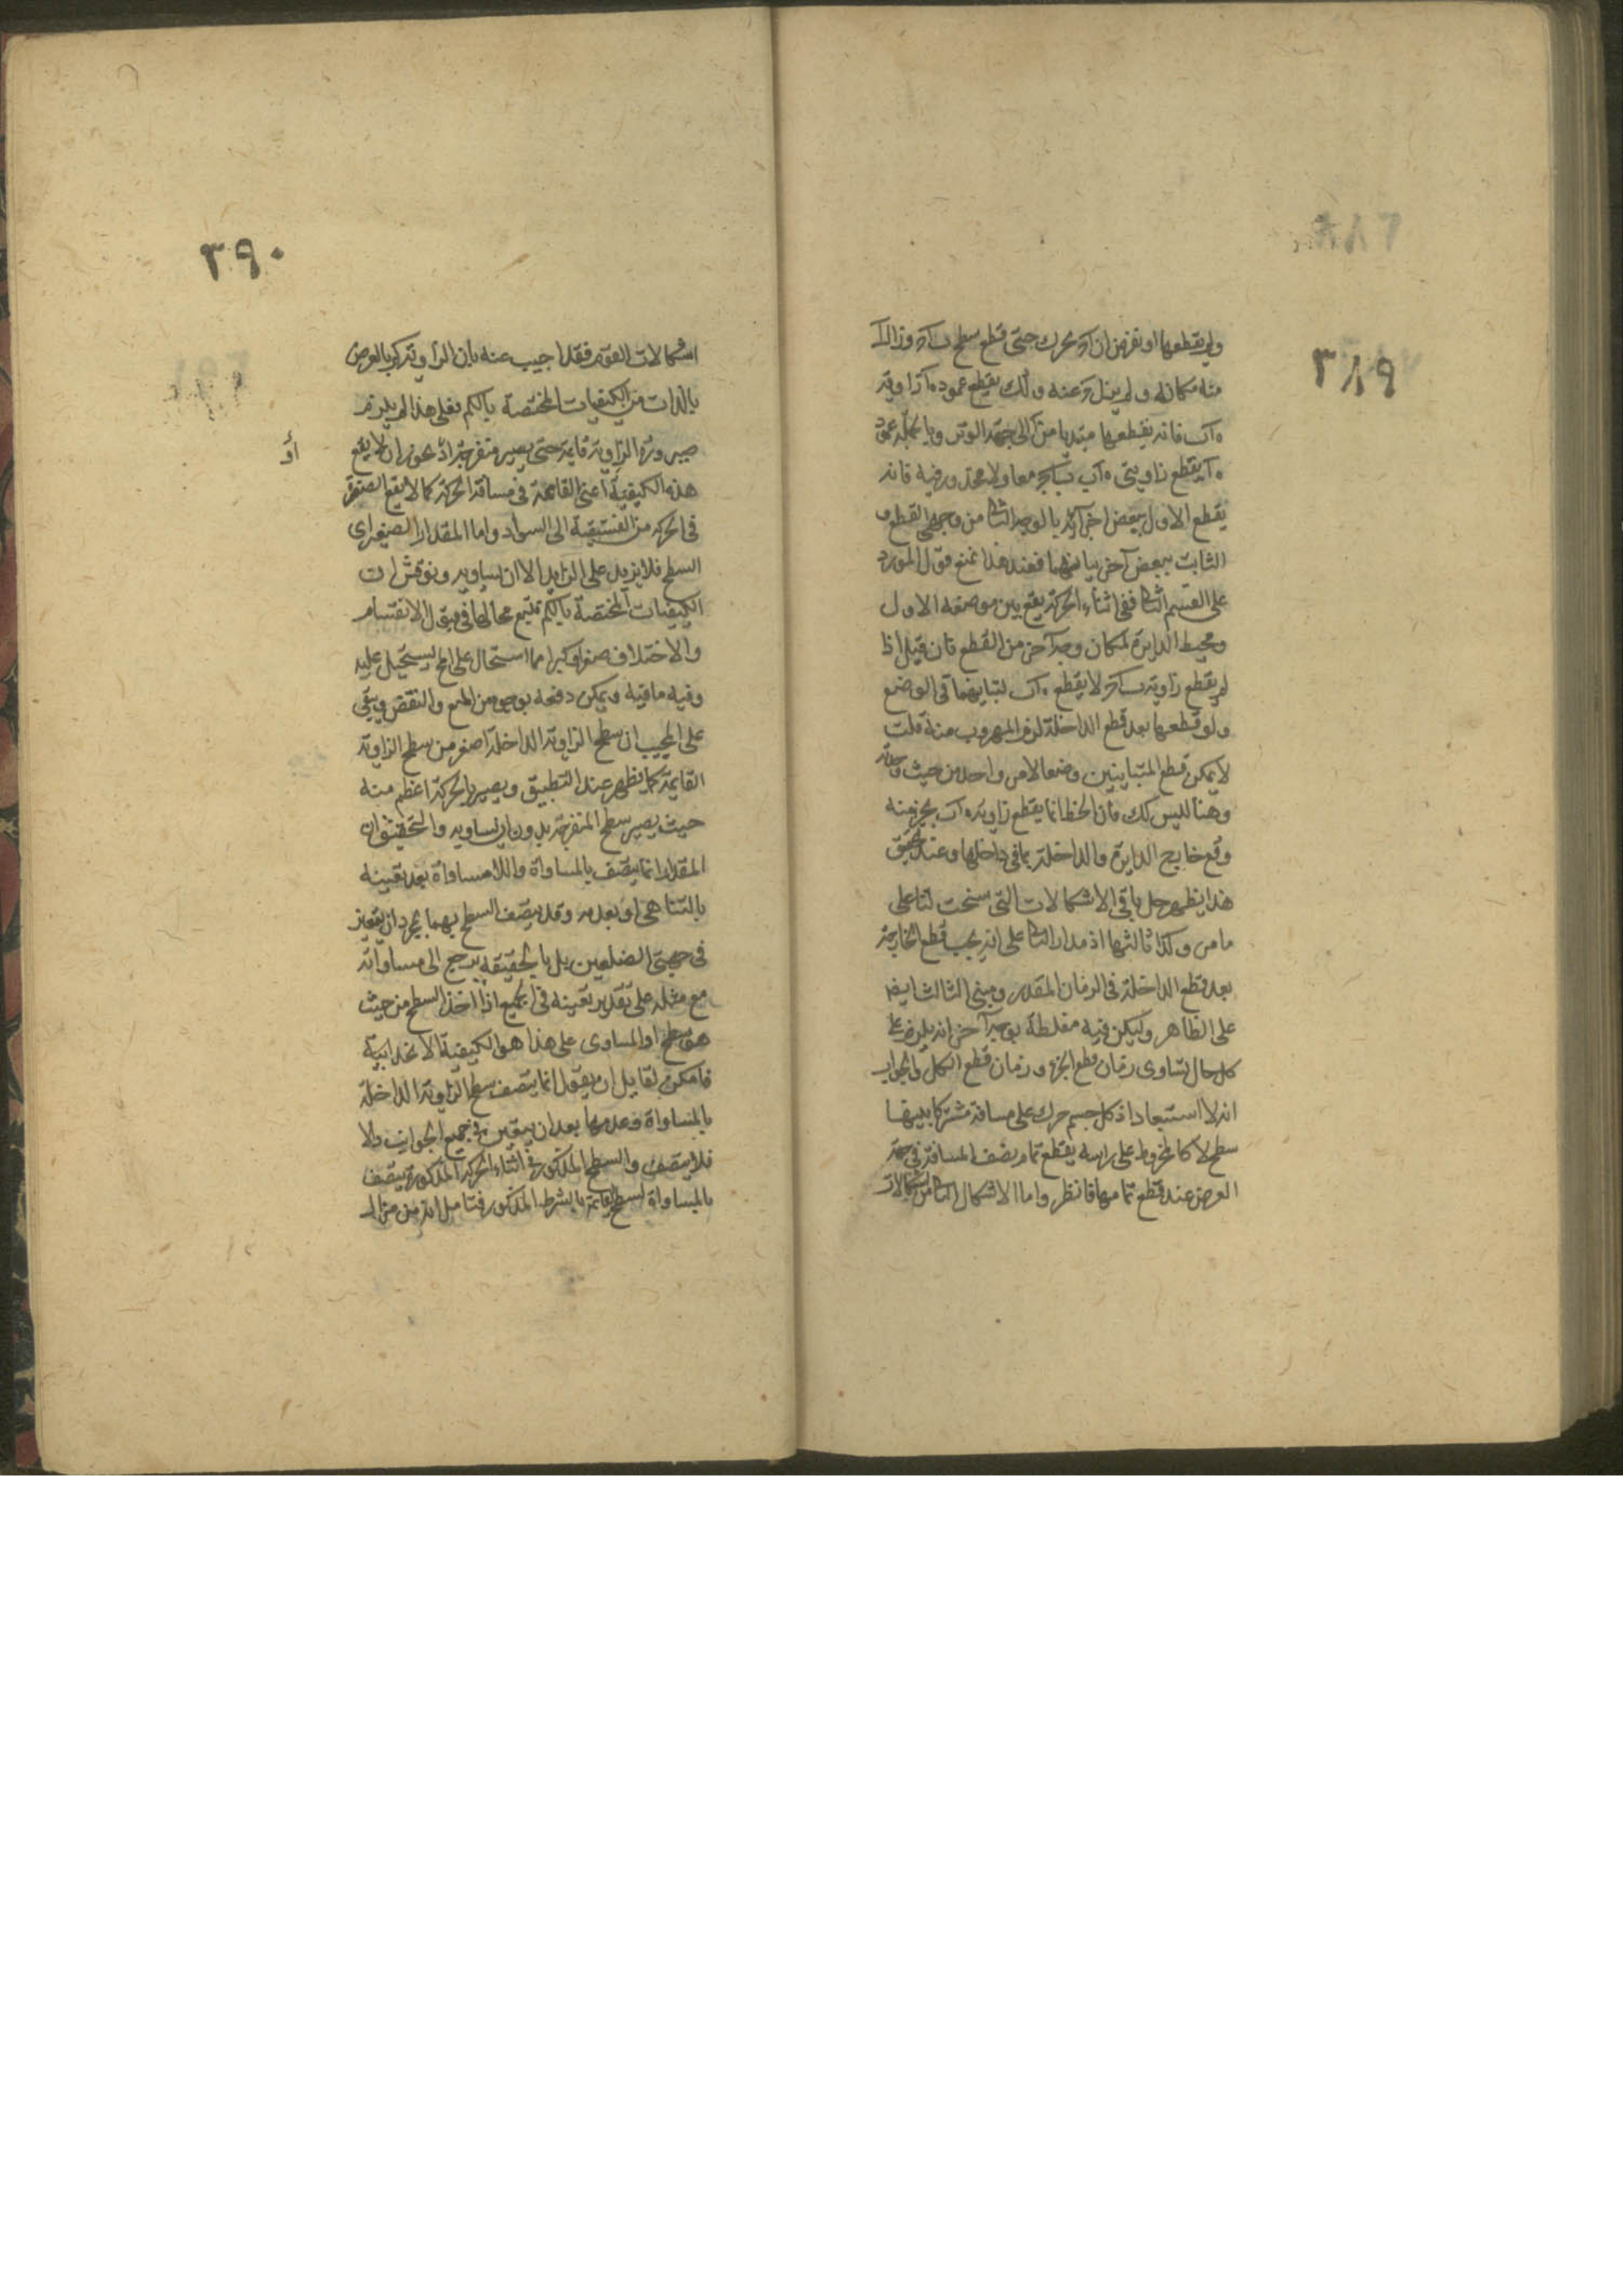 ٣٨٩
ولم يقطعها او نفرض ان آء تحرك حتى قطع سطح
منه مكانه ولم يزل ء عنه وكك يقطع عمود ه آ زاوية
ه آ ب فانه يقطعها مبتديا من آ الى جهة الوتر وبالجملة عمود
ه آ يقطع زاويتي ه آ ب معا ولا محذور فيه فانه
يقطع الاول ببعض اجزائه بالوجه الثانى من وجهى القطع و
الثابت ببعض آخر يباينهما فعند هذا نمنع قول المورد
على القسم الثانى ففى اثناء الحركة يقع بين موضعه الاول
ومحيط الدايرة لمكان وجه آخر من القطع فان قيل اذا
لم يقطع زاوية لا يقطع ه آ ب لتباينهما فى الوضع
ولو قطعها بعد قطع الداخلة لزم المهروب منه قلت
لا يمكن قطع المتباينين وضعا لامر واحد من حيث وحدته
وهنا ليس كك فان الخط انما يقطع زاوية ه آ ب بجزء منه
وقع خارج الدايرة والداخلة بما فى داخلها وعند تحقق
هذا يظهر حل باقى الاشكالات التى سنحت لنا على
ما مر وكذا ثالثها اذ مدار الثانى على انه يجب قطع الخارجة
بعد قطع الداخلة فى الزمان المقدر ومبنى الثالث ايضا
على الظاهر وليكن فيه مغلطة بوجه آخر انه يلزم على
كل حال تساوى زمان قطع الجزء وزمان قطع الكل والجواب
انه لا استبعاد اذ كل جسم حرك على مسافة مشتركا بينهما
سطح لا كالمخروط على راسه يقطع تمام نصف المسافة فى جهة
العرض عند قطع تمامها فانظر واما الاشكال الثانى من اشكالات
٣٩٠
اشكالات القوم فقد اجيب عنه بان الزاوية كم بالعرض
بالذات من الكيفيات المختصة بالكم فعلى هذا لم يلزم
صيرورة الزاوية قايمة حتى يصير منفرجة اذ يجوز ان لا يقع
أو
هذه الكيفية اعنى القائمة فى مسافة الحركة كما لا يقع الصفرة
فى الحركة من الفستقية الى السواد واما المقدار الصغير اى
السطح فلا يزيد على الزايد الا ان يساويه ونوقش ان
الكيفيات المختصة بالكم تتبع محالها فى قبول الانقسام
والاختلاف صغرا وكبرا مما استحال على المحل يستحيل عليه
وفيه ما فيه ويمكن دفعه بوجوه من المنع والنقض ويبقى
على المجيب ان سطح الزاوية الداخلة اصغر من سطح الزاوية
القايمة كما يظهر عند التطبيق ويصير بالحركة اعظم منه
حيث يصير سطح المنفرجة بدون ان يساويه والتحقيق ان
المقدار انما يتصف بالمساواة واللامساواة بعد تعينه
بالتناهى او بعدمه وقد يتصف السطح بهما بمجرد ان يتعين
فى جهتى الضلعين بل بالحقيقة يرجع الى مساواته
مع مثله على تقدير تعينه فى الجميع اذا اخذ السطح من حيث
هو سطح او المساوى على هذا هو الكيفية الانحدابية
فامكن لقايل ان يقول انما يتصف سطح الزاوية الداخلة
بالمساواة وعدمها بعد ان يتعين فى جميع الجوانب والا
فلا يتصف والسطح المذكور فى اثناء الحركة المذكورة يتصف
بالمساواة لسطح القائمة بالشرط المذكور فتامل انه من مزال